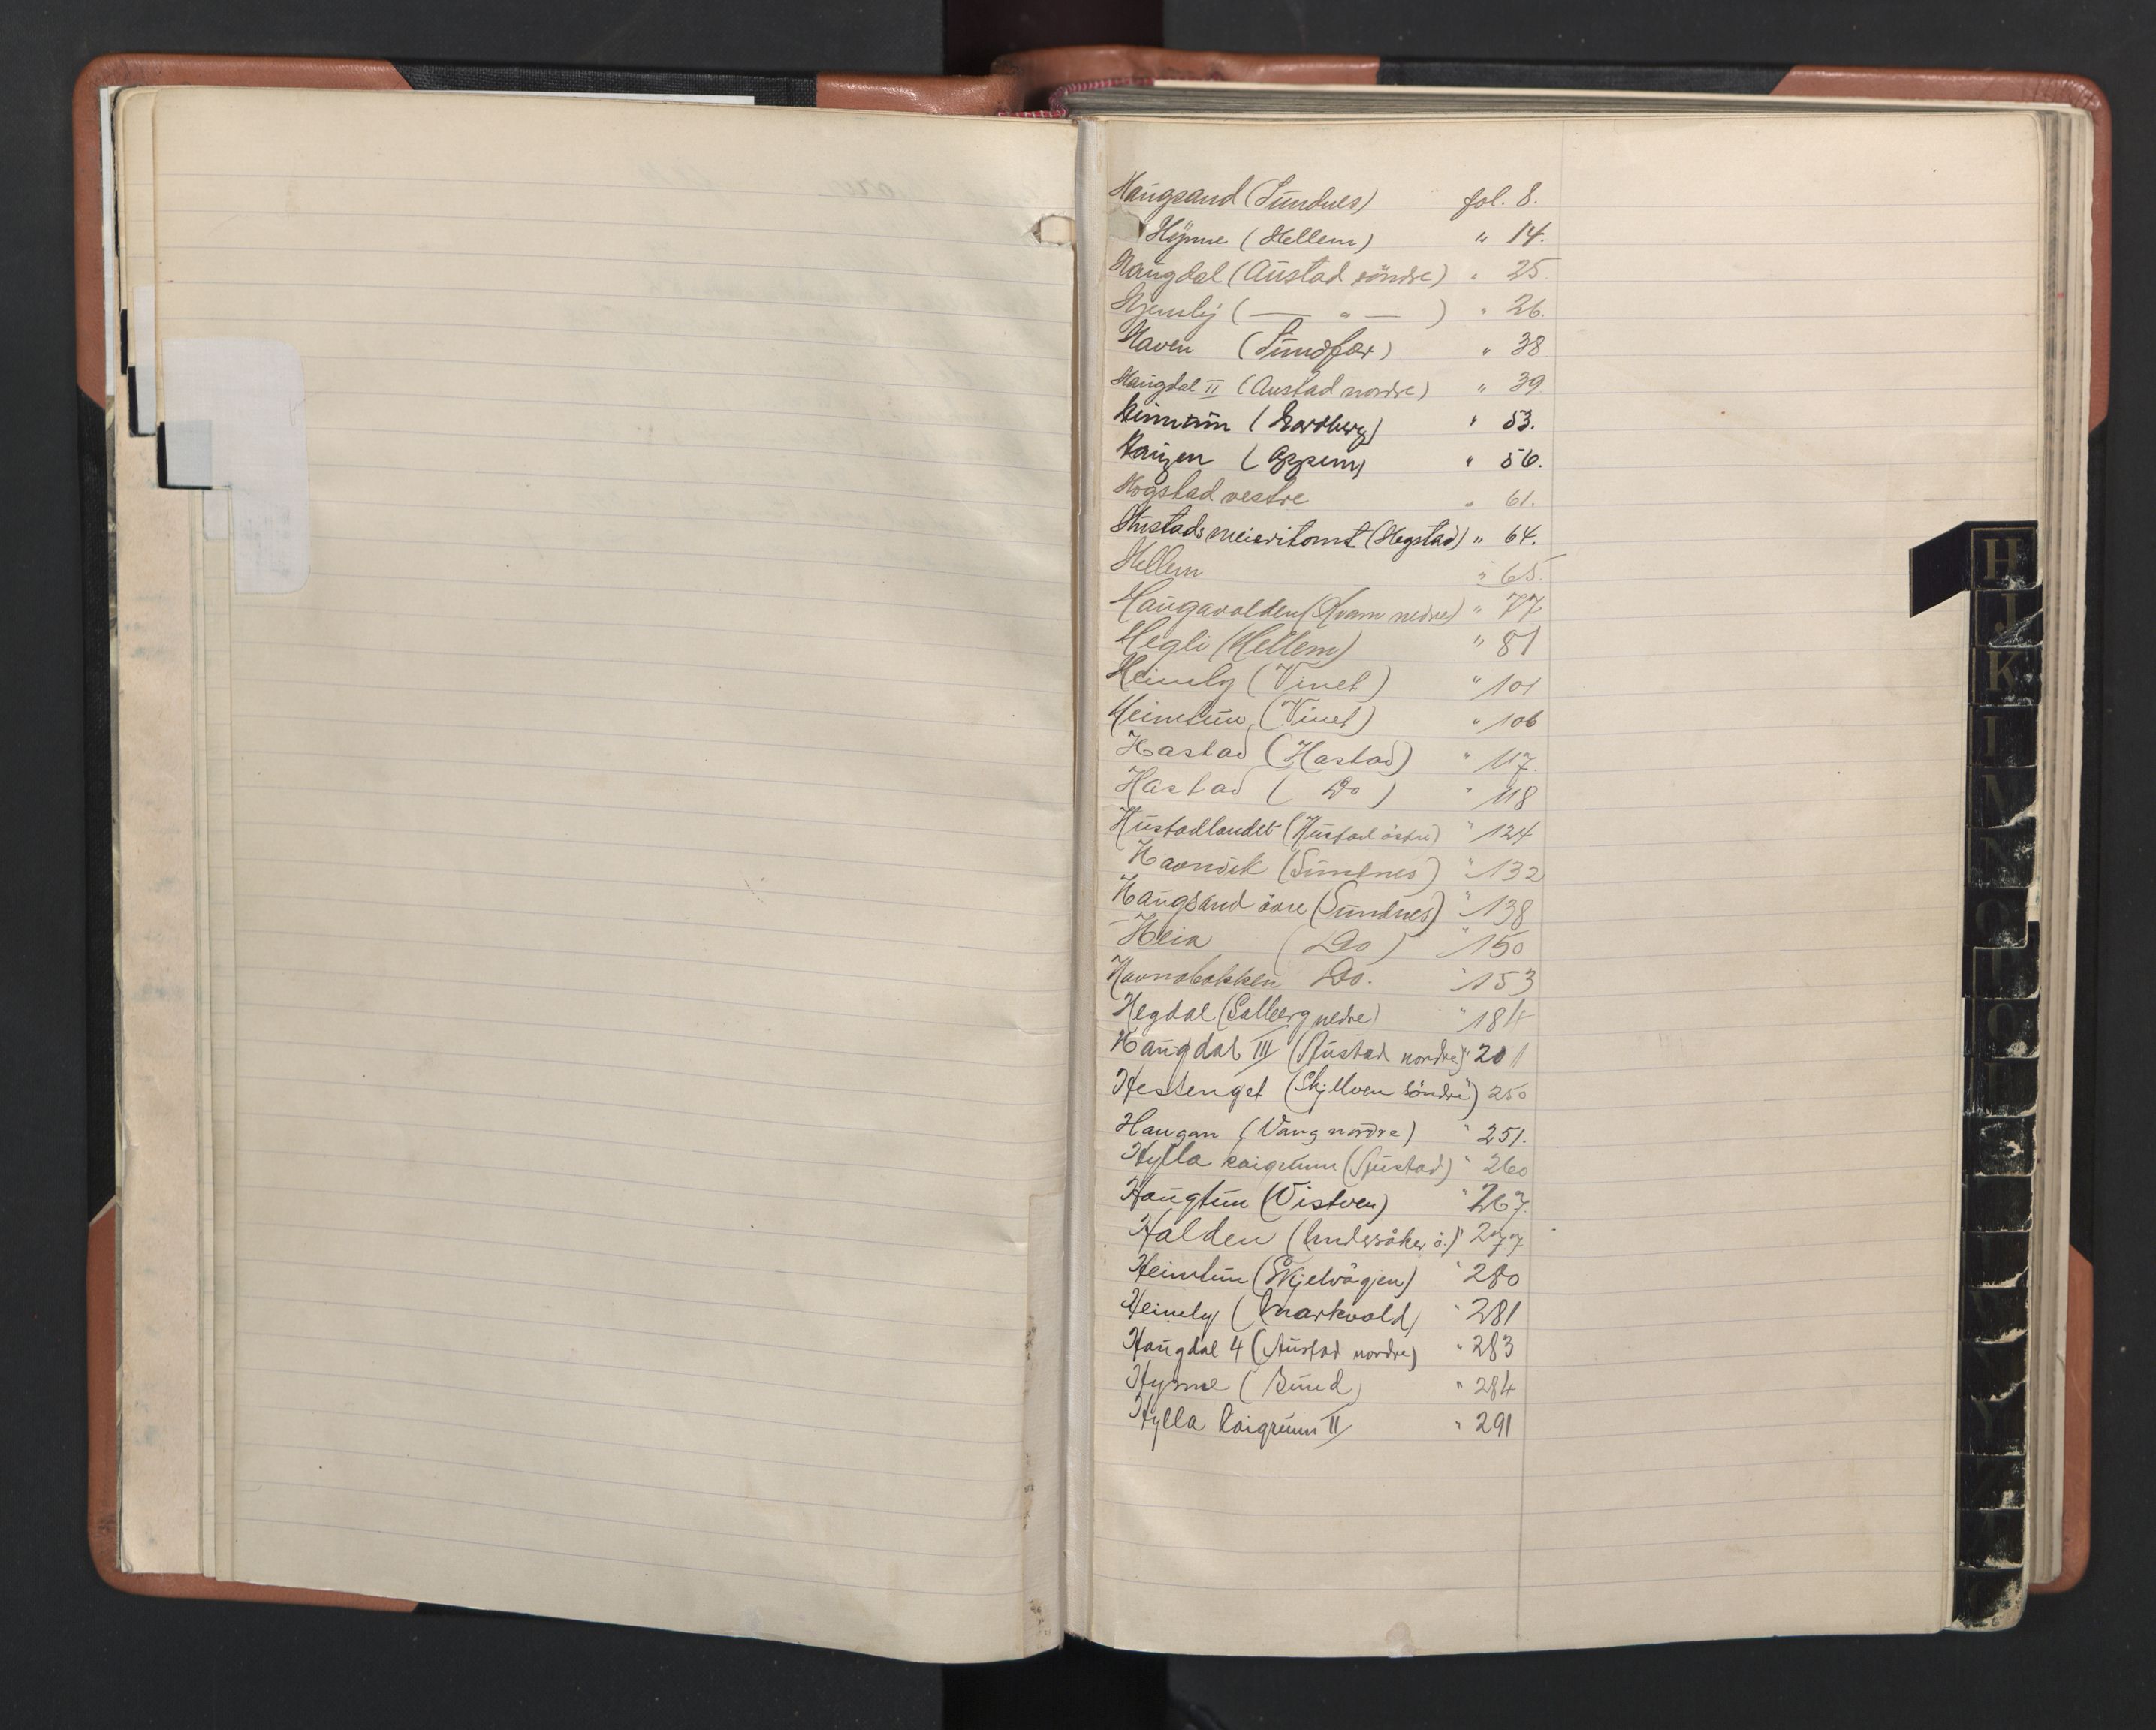 Haugsand (Sundnes) fol. 8.
Hynne (Hellem) " 14.
Haugdal (Austad söndre) " 25.
Hjemly ( — " — ) " 26.
Haven (Sundfær) " 38
Haugdal II (Austad nordre) " 39.
Heimtun ( " 53.
Haugen ( " 56.
Hogstad vestre " 61.
Hustads meieritomt (Hegstad) " 64.
Hellem " 65.
Haugavolden (Kvam nedre) " 77
Hegli (Hellem) " 81
Heimly (Vinet) " 101
Heimtun (Vinet) " 106
Hastad (Hastad) " 117.
Hastad ( Do ) " 118
Hustadlandet (Hustad östre) " 124
Havnvik (Sundnes) " 132
Haugsand övre (Sundnes) " 138
Heia ( Do ) " 150
Havnabakken Do. " 153
Hegdal (Salberg nedre) " 184
Haugdal III (Austad nordre) " 201
Hestenget (Skjelven söndre) " 250
Haugan (Vang nordre) " 251.
Hylla kaigrunn (Austad) " 260
Haugtun (Vistven) " 267.
Halden (Undersåker ö.) " 277
Heimtun (Skjelvågen) " 280
Heimly (Markvold) " 281
Haugdal 4 (Austad nordre) " 283
Hynne (Sund) " 284
Hylla kaigrunn II " 291
H
J
K